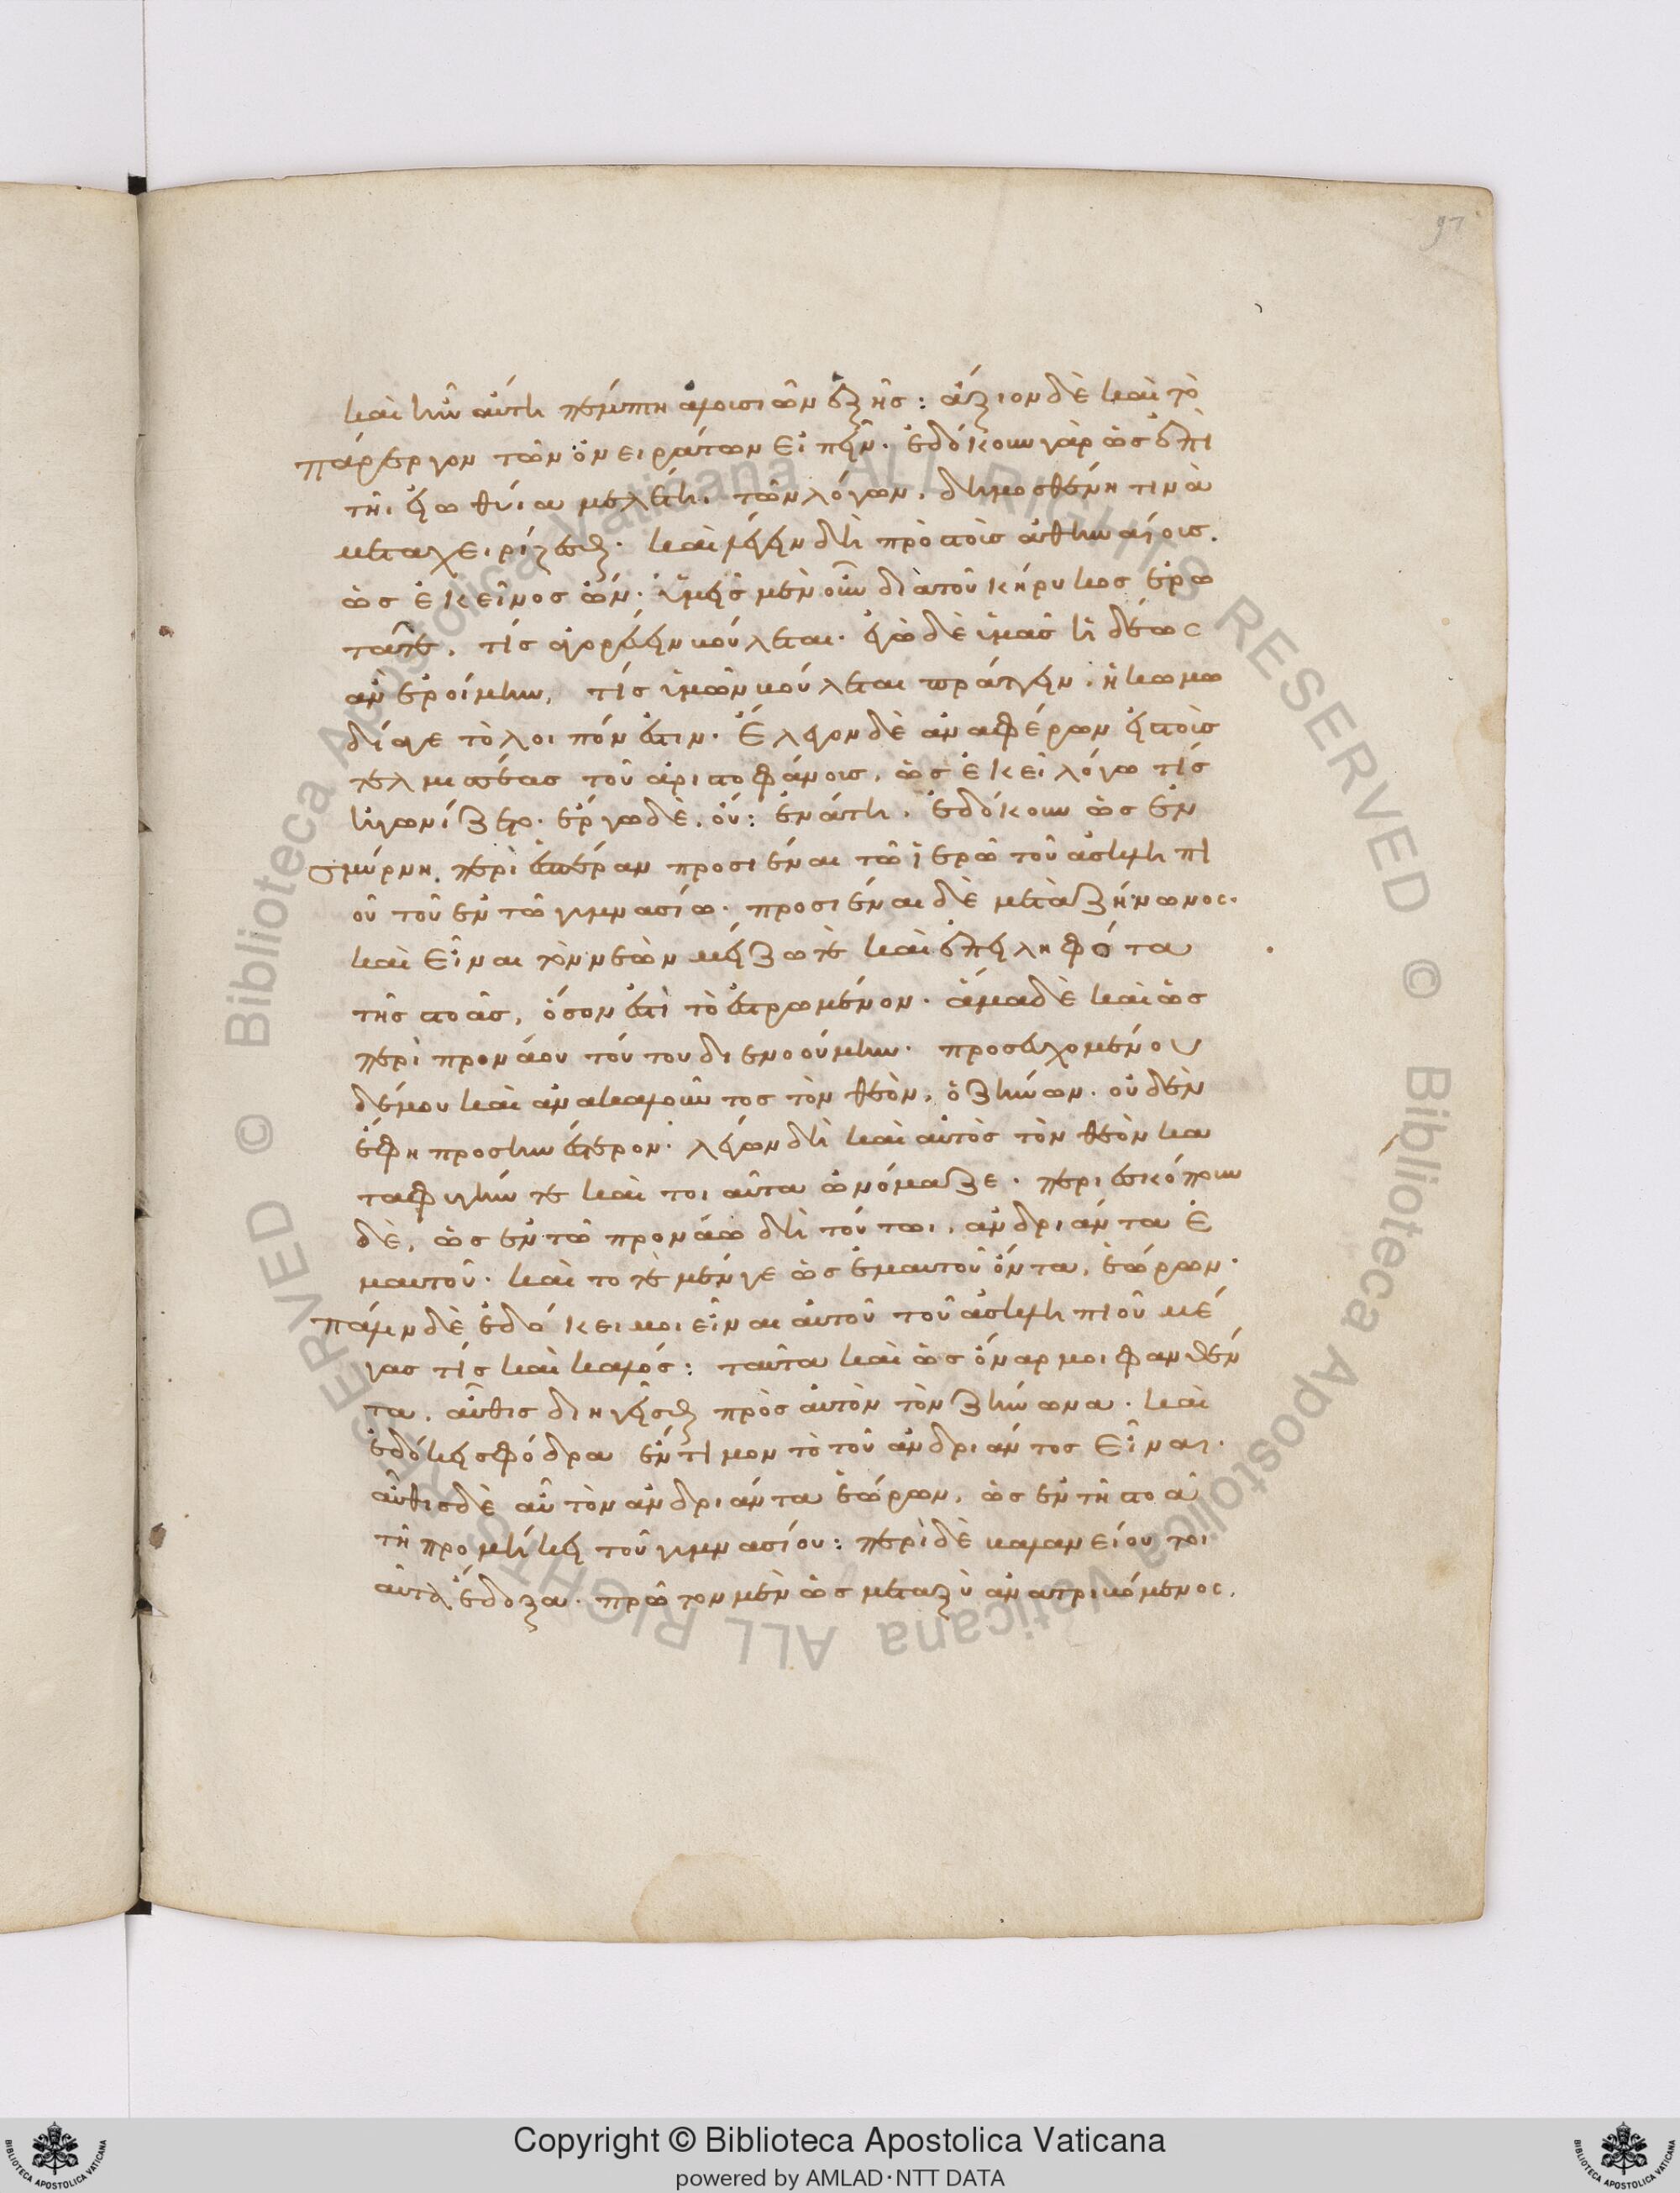 97
καὶ ἦν αὕτη πέμπτη ἀλουσιῶν ἑξῆς: ἄξιον δὲ καὶ τὸ
πάρεργον τῶν ὀνειράτων εἰπεῖν· ἐδόκουν γὰρ ὡς ἐπὶ
τῆι εἰωθυία μελέτηι τῶν λόγων, δημοσθένη τινὰ
μεταχειρίζεσθαι· καὶ λέγειν δὴ πρὸς τοῖς ἀθηναίοις.
ὡς ἐκεῖνος ὤν· ὑμεῖς μὲν οὖν διὰ τοῦ κήρυκος ἐρω
τᾶτε, τίς ἀγορεύειν βούλεται· ἐγὼ δὲ ὑμᾶς ἡδέως
ἂν ἐροίμην, τίς ὑμῶν βούλεται πράττειν· ἢ κωμω
δία γε τὸ λοιπόν ἐστιν· ἔλεγον δὲ ἀναφέρων εἰς τοὺς
τελμισέας τοῦ ἀριστοφάνους, ὡς ἐκεῖ λόγω τίς
ἠγωνίζετο· ἔργω δὲ, οὔ: ἐνάτη· ἐδόκουν ὡς ἐν
σμύρνη, περὶ ἑσπέραν προσιέναι τῶ ἱερῶ τοῦ ἀσκληπι
οῦ τοῦ ἐν τῶ γυμνασίω· προσιέναι δὲ μετὰ ζήνωνος·
καὶ εἶναι τὸν νεὼν μείζω τε καὶ ἐπειληφότα
τῆς στοᾶς, ὅσον ἐστὶ τὸ ἐστρωμένον· ἅμα δὲ καὶ ὡς
περὶ προνάου τούτου διενοούμην· προσευχομένου
δέ μου καὶ ἀνακαλοῦντος τὸν θεὸν, ὁ ζήνων· οὐδὲν
ἔφη προσηνέστερον· λέγων δὴ καὶ αὐτὸς τὸν θεὸν κα
ταφυγήν τε καὶ τοιαῦτα ὠνόμαζε· περιεσκόπουν
δὲ, ὡς ἐν τῶ προνάω δὴ τούτωι, ἀνδριάντα ἐ
μαυτοῦ· καὶ τοτὲ μέν γε ὡς ἐμαυτοῦ ὄντα, ἑώρων·
πάλιν δὲ ἐδόκει μοι εἶναι αὐτοῦ τοῦ ἀσκληπιοῦ μέ
γας τίς καὶ καλός: ταῦτα καὶ ὡς ὄναρ μοι φανθέν
τα, αὖθις διηγεῖσθαι πρὸς αὐτὸν τὸν ζήνωνα· καὶ
ἐδόκει σφόδρα ἔντιμον τὸ τοῦ ἀνδριάντος εἶναι·
αὖθις δὲ αὖ τὸν ἀνδριάντα ἑώρων, ὡς ἐν τῆ στοᾶ
τῆ προμήκει τοῦ γυμνασίου: περὶ δὲ βαλανείου τοι
αῦτα ἔδοξα· πρῶτον μὲν ὡς μεταξὺ ἀνατριβόμενος,
Copyright © Biblioteca Apostolica Vaticana
powered by AMLAD·NTT DATA